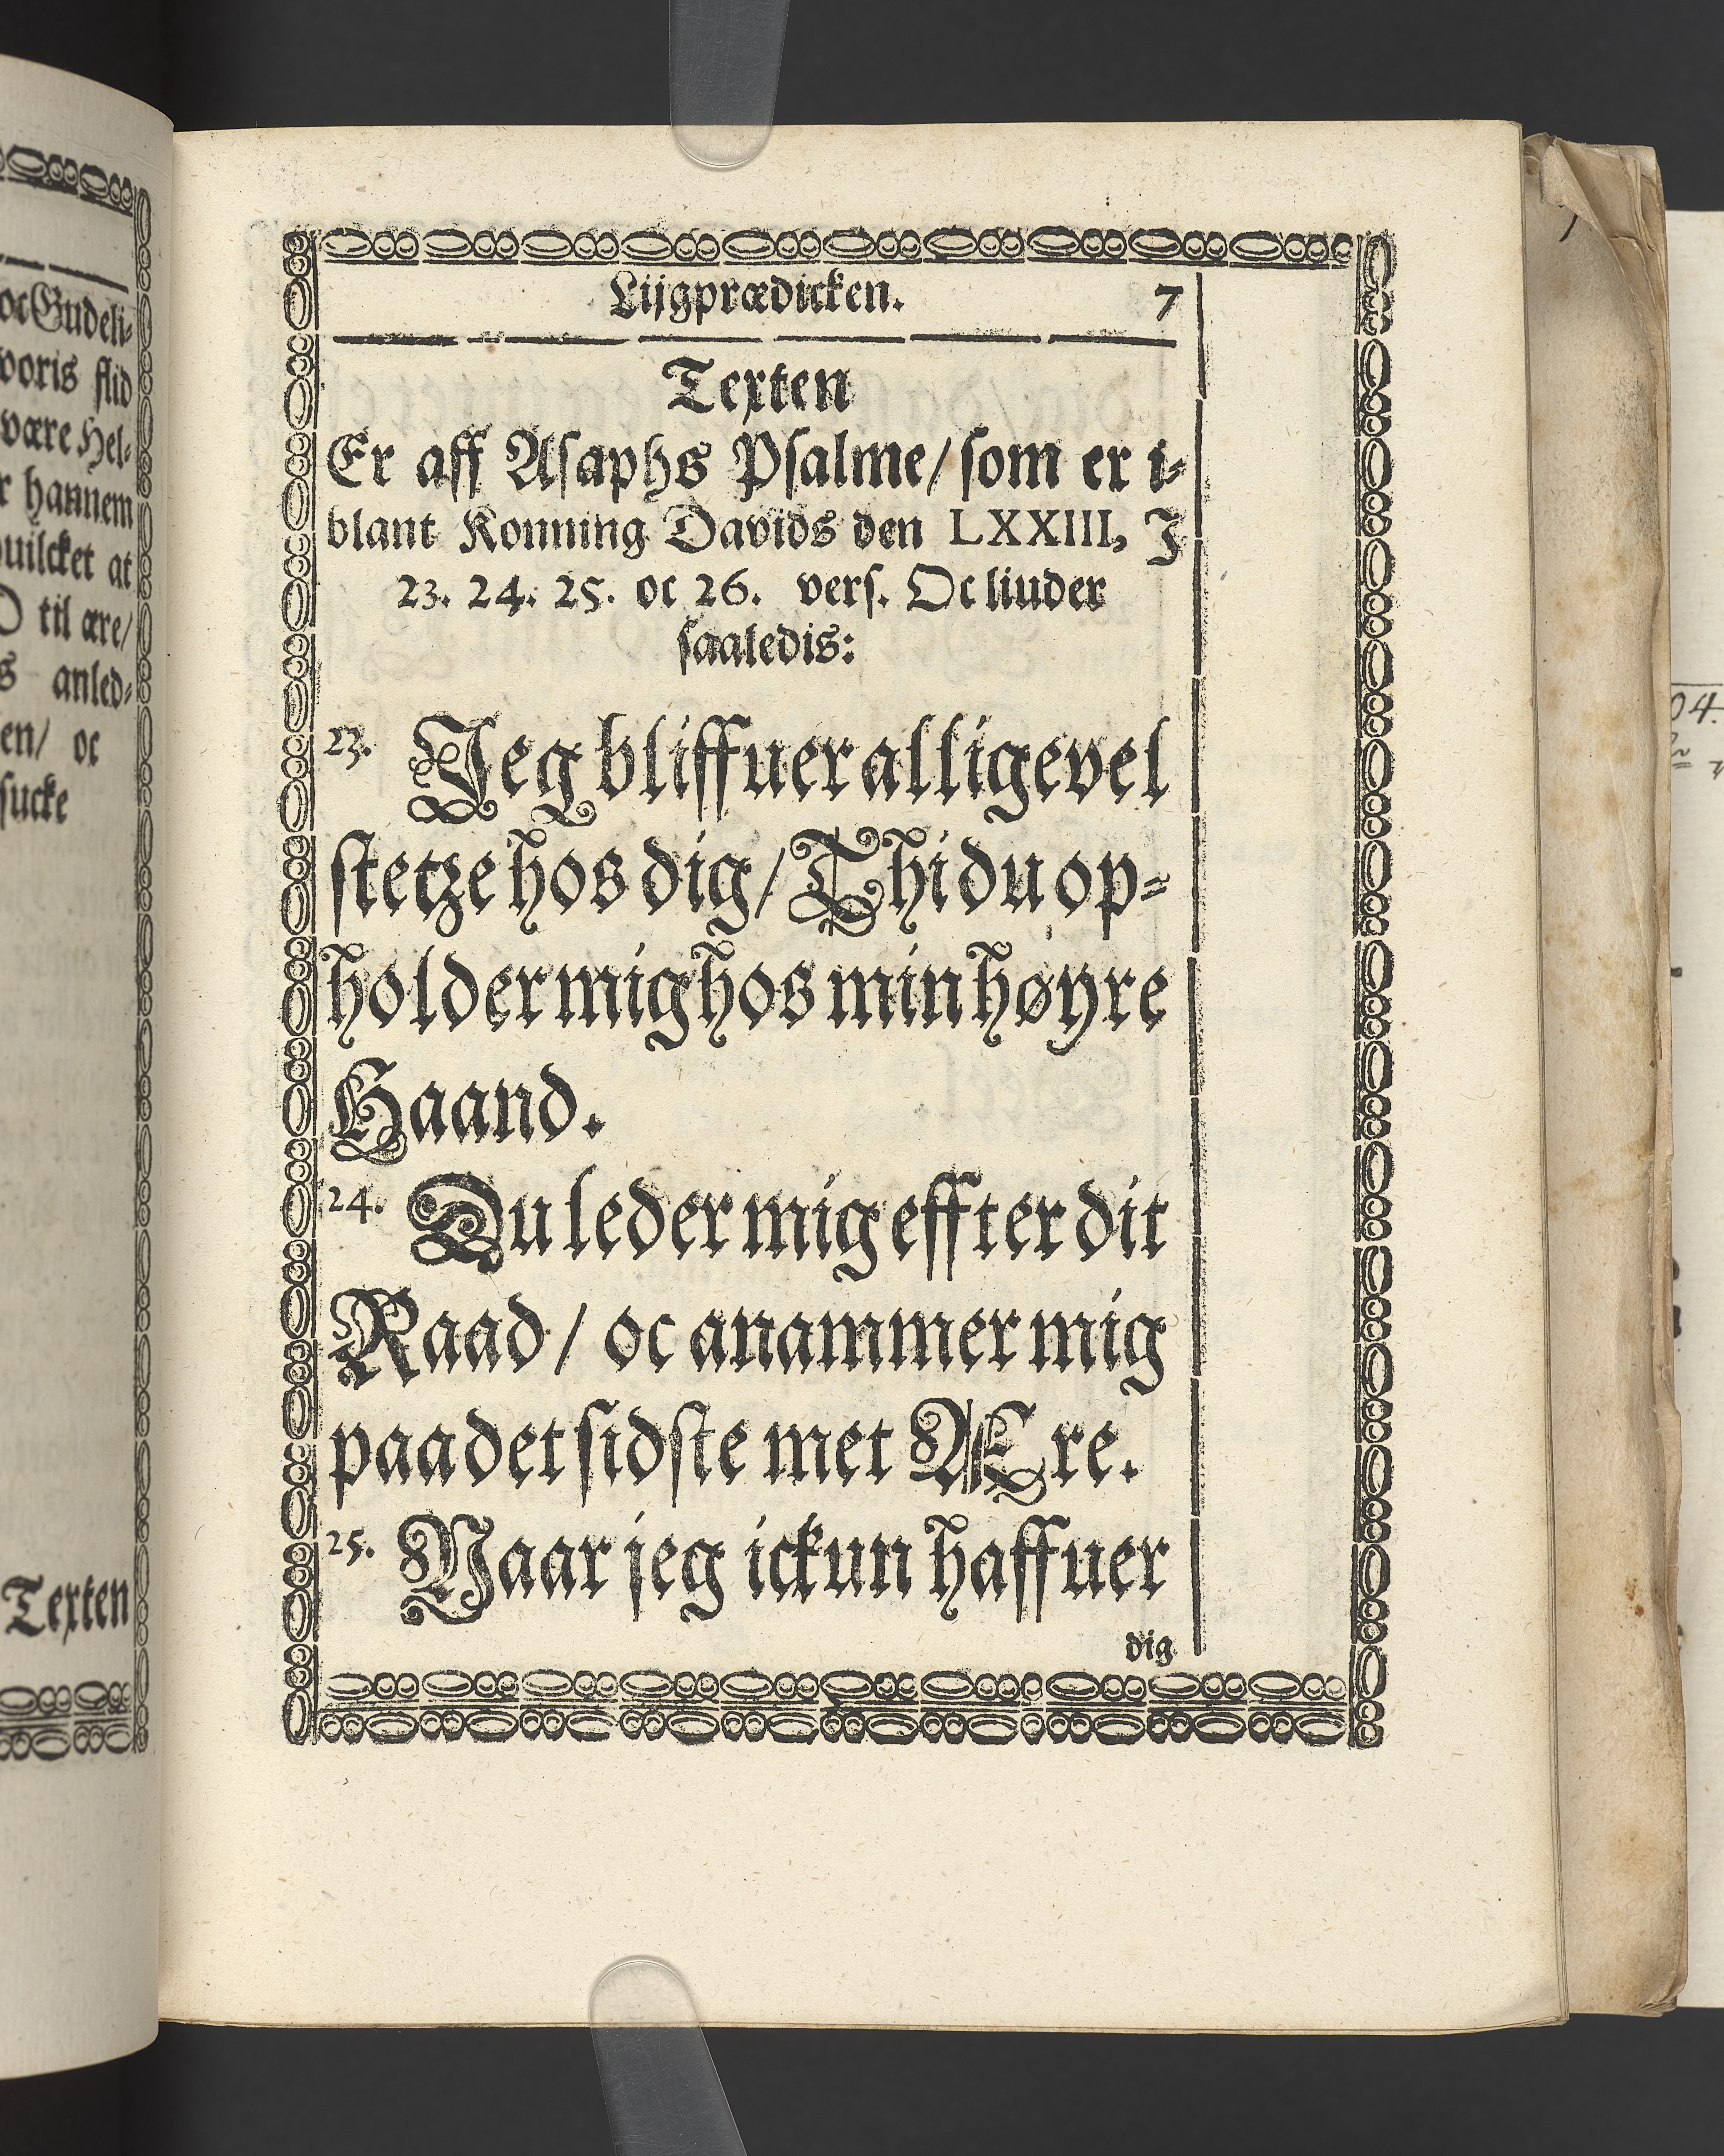 oc Gudeli-
voris flid
være Hel-
hannem
huilcket at
til ære/
anled-
oc
sucke
Texten
Lijgprædicken. 7
Texten
Er aff Asaphs Psalme/ som er i-
blant Konning Davids den LXXIII, J
23. 24. 25. oc 26. vers. Oc liuder
saaledis:
23. Jeg bliffuer alligevel
stetze hos dig/ Thi du op-
holder mig hos min høyre
Haand.
24. Du leder mig effter dit
Raad/ oc anammer mig
paa det sidste met ÆEre.
25. Naar jeg ickun haffuer
dig